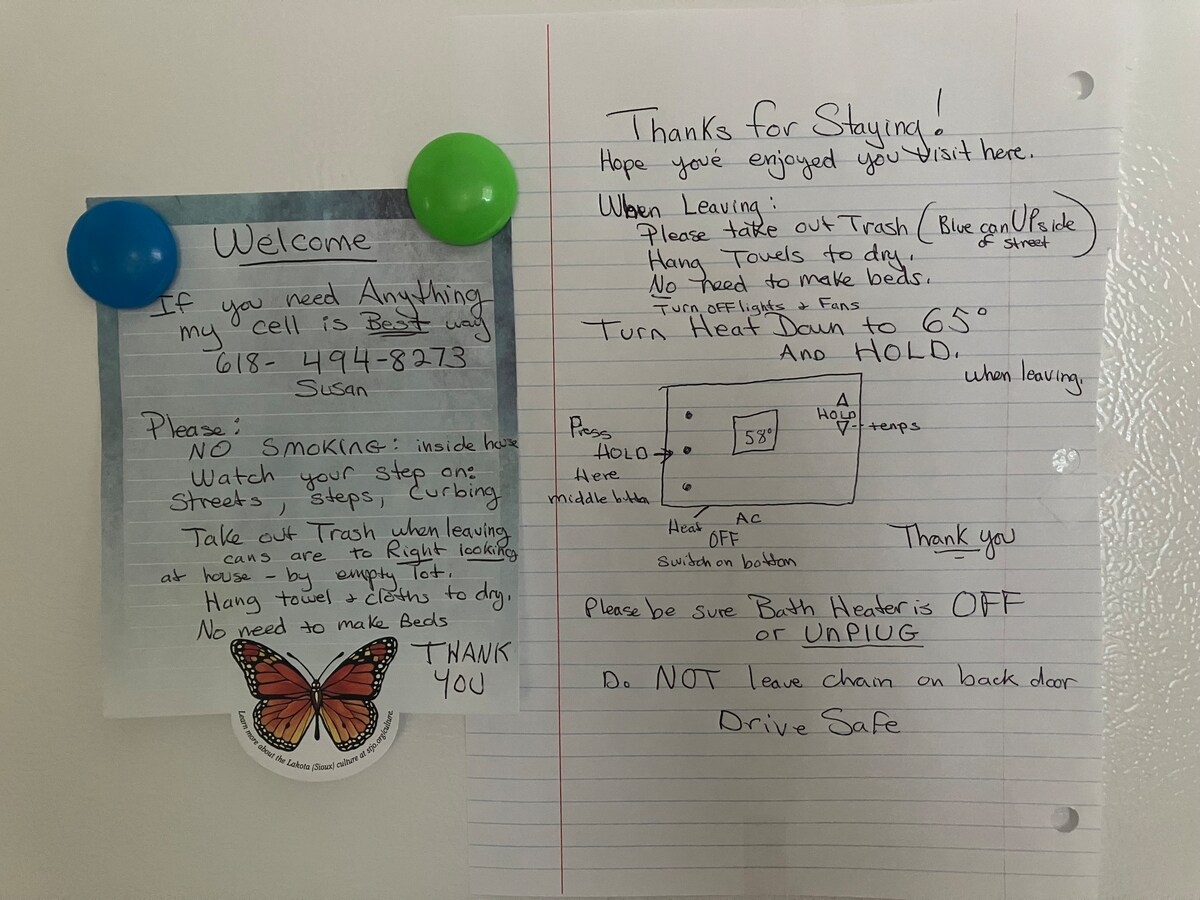 Welcome
If you need Anything
my cell is Best way
618- 494-8273
Susan
Please:
NO SMOKING: inside house
Watch your step on:
Streets, steps, Curbing
Take out Trash when leaving
cans are to Right looking
at house - by empty lot.
Hang towel & cloths to dry.
No need to make Beds
THANK
YOU
Learn more about the Lakota (Sioux) culture at stjo.org/culture.
Thanks for Staying!
Hope youé enjoyed you visit here.
When Leaving:
Please take out Trash (Blue can UPside
of street)
Hang Towels to dry.
No need to make beds.
Turn off lights & Fans
Turn Heat Down to 65°
And HOLD.
when leaving.
Press
HOLD →
Here
middle butta
58°
△
HOLD
▽ - temps
Heat
OFF
AC
Switch on bottom
Thank you
Please be sure Bath Heater is OFF
or UnPLUG
Do NOT leave chain on back door
Drive Safe